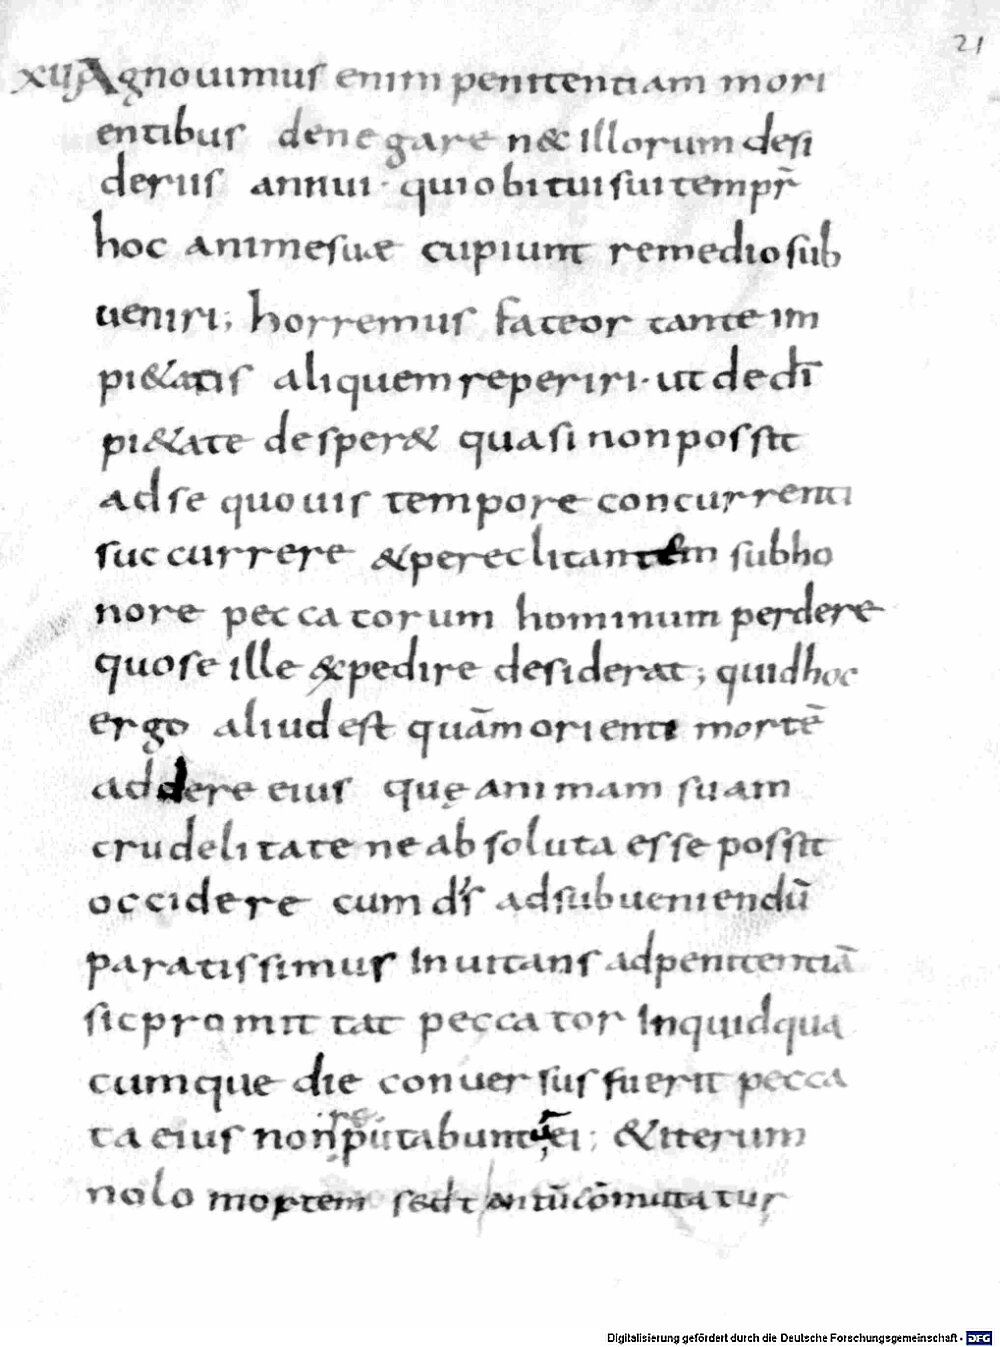 21
XII Agnouimus enim penitentiam mori
entibus denegare n& illorum desi
deriis annui · qui obitui sui tempr̄
hoc anime suæ cupiunt remedio sub
ueniri; horremus fateor tante im
pi&atis aliquem reperiri · ut de dī
pi&ate desper& quasi non possit
ad se quouis tempore concurrenti
succurrere & pereclitantem sub ho
nore peccatorum hominum perdere
quo se ille expedire desiderat; quid hoc
ergo aliud est quā morienti mortē
addere eius quę animam suam
crudelitate ne absoluta esse possit
occidere cum d's ad subueniendū
paratissimus Inuitans ad penitentiā
sic promittat peccator Inquid qua
cumque die conuersus fuerit pecca
ta eius non putabuntur ei; &iterum
nolo mortem sed tantū cōmutatur
Digitalisierung gefördert durch die Deutsche Forschungsgemeinschaft - DFG